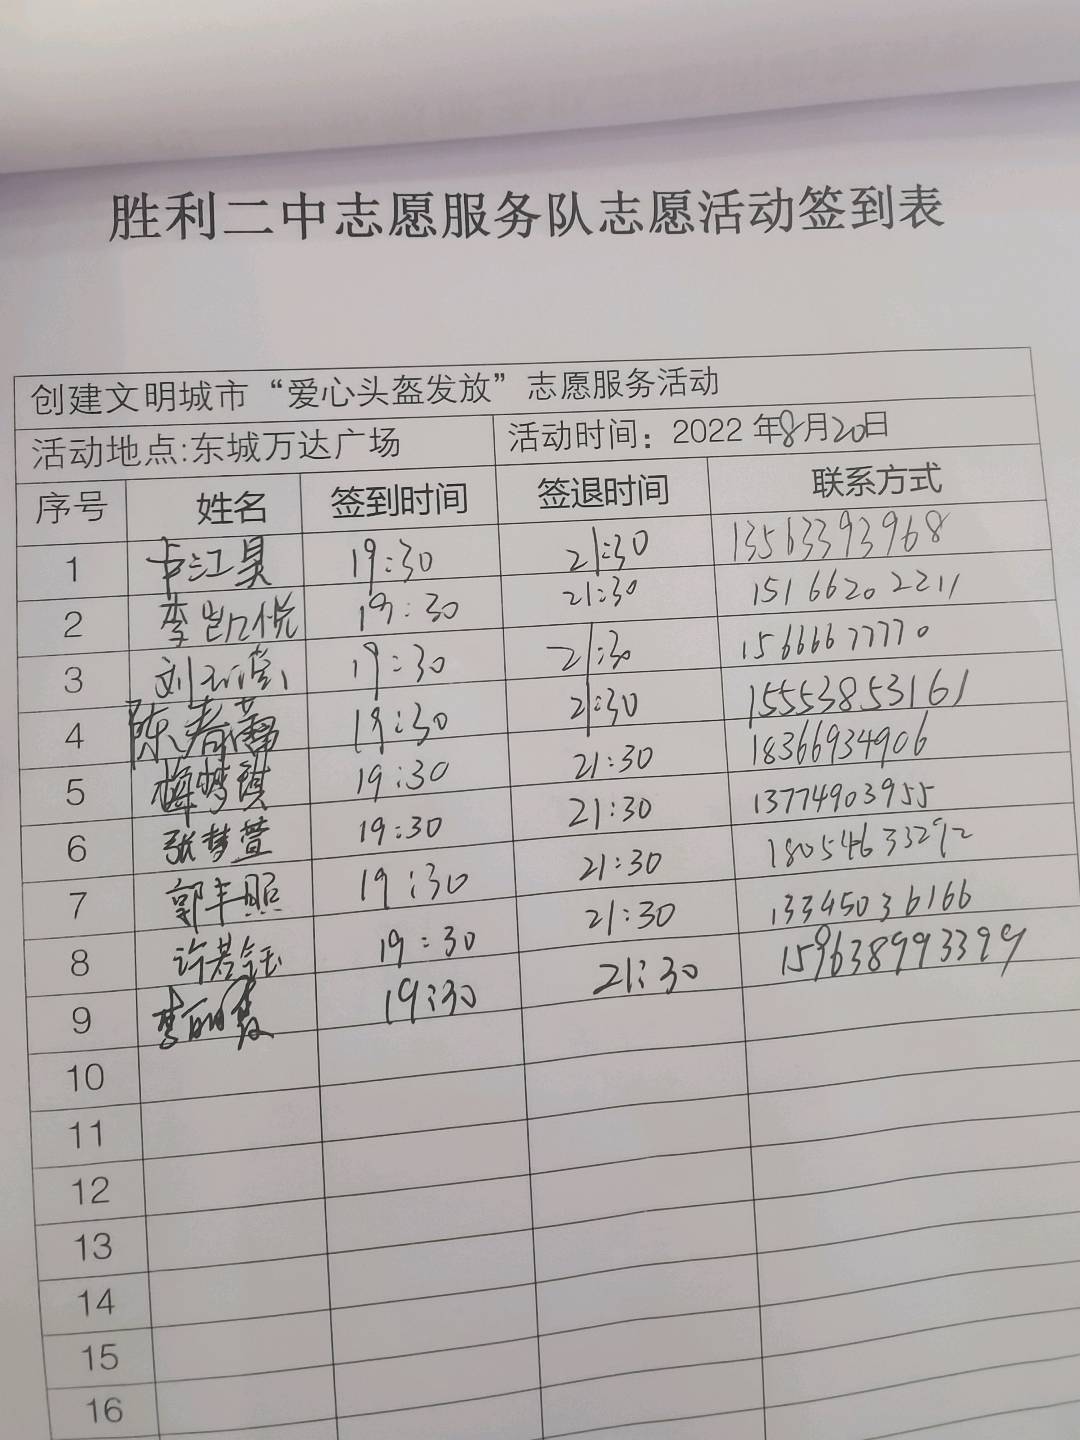 胜利二中志愿服务队志愿活动签到表
创建文明城市“爱心头盔发放”志愿服务活动
活动地点:东城万达广场 活动时间：2022 年8月20日
序号 姓名 签到时间 签退时间 联系方式
1 卞江昊 19:30 21:30 13563393968
2 李凯悦 19:30 21:30 15166202211
3 刘 19:30 21:30 15666677770
4 陈春蕾 19:30 21:30 15553853161
5 梅梦琪 19:30 21:30 18366934906
6 张梦萱 19:30 21:30 13774903955
7 郭丰照 19:30 21:30 18054633292
8 许若钰 19:30 21:30 13345036166
9 李丽霞 19:30 21:30
10
11
12
13
14
15
16